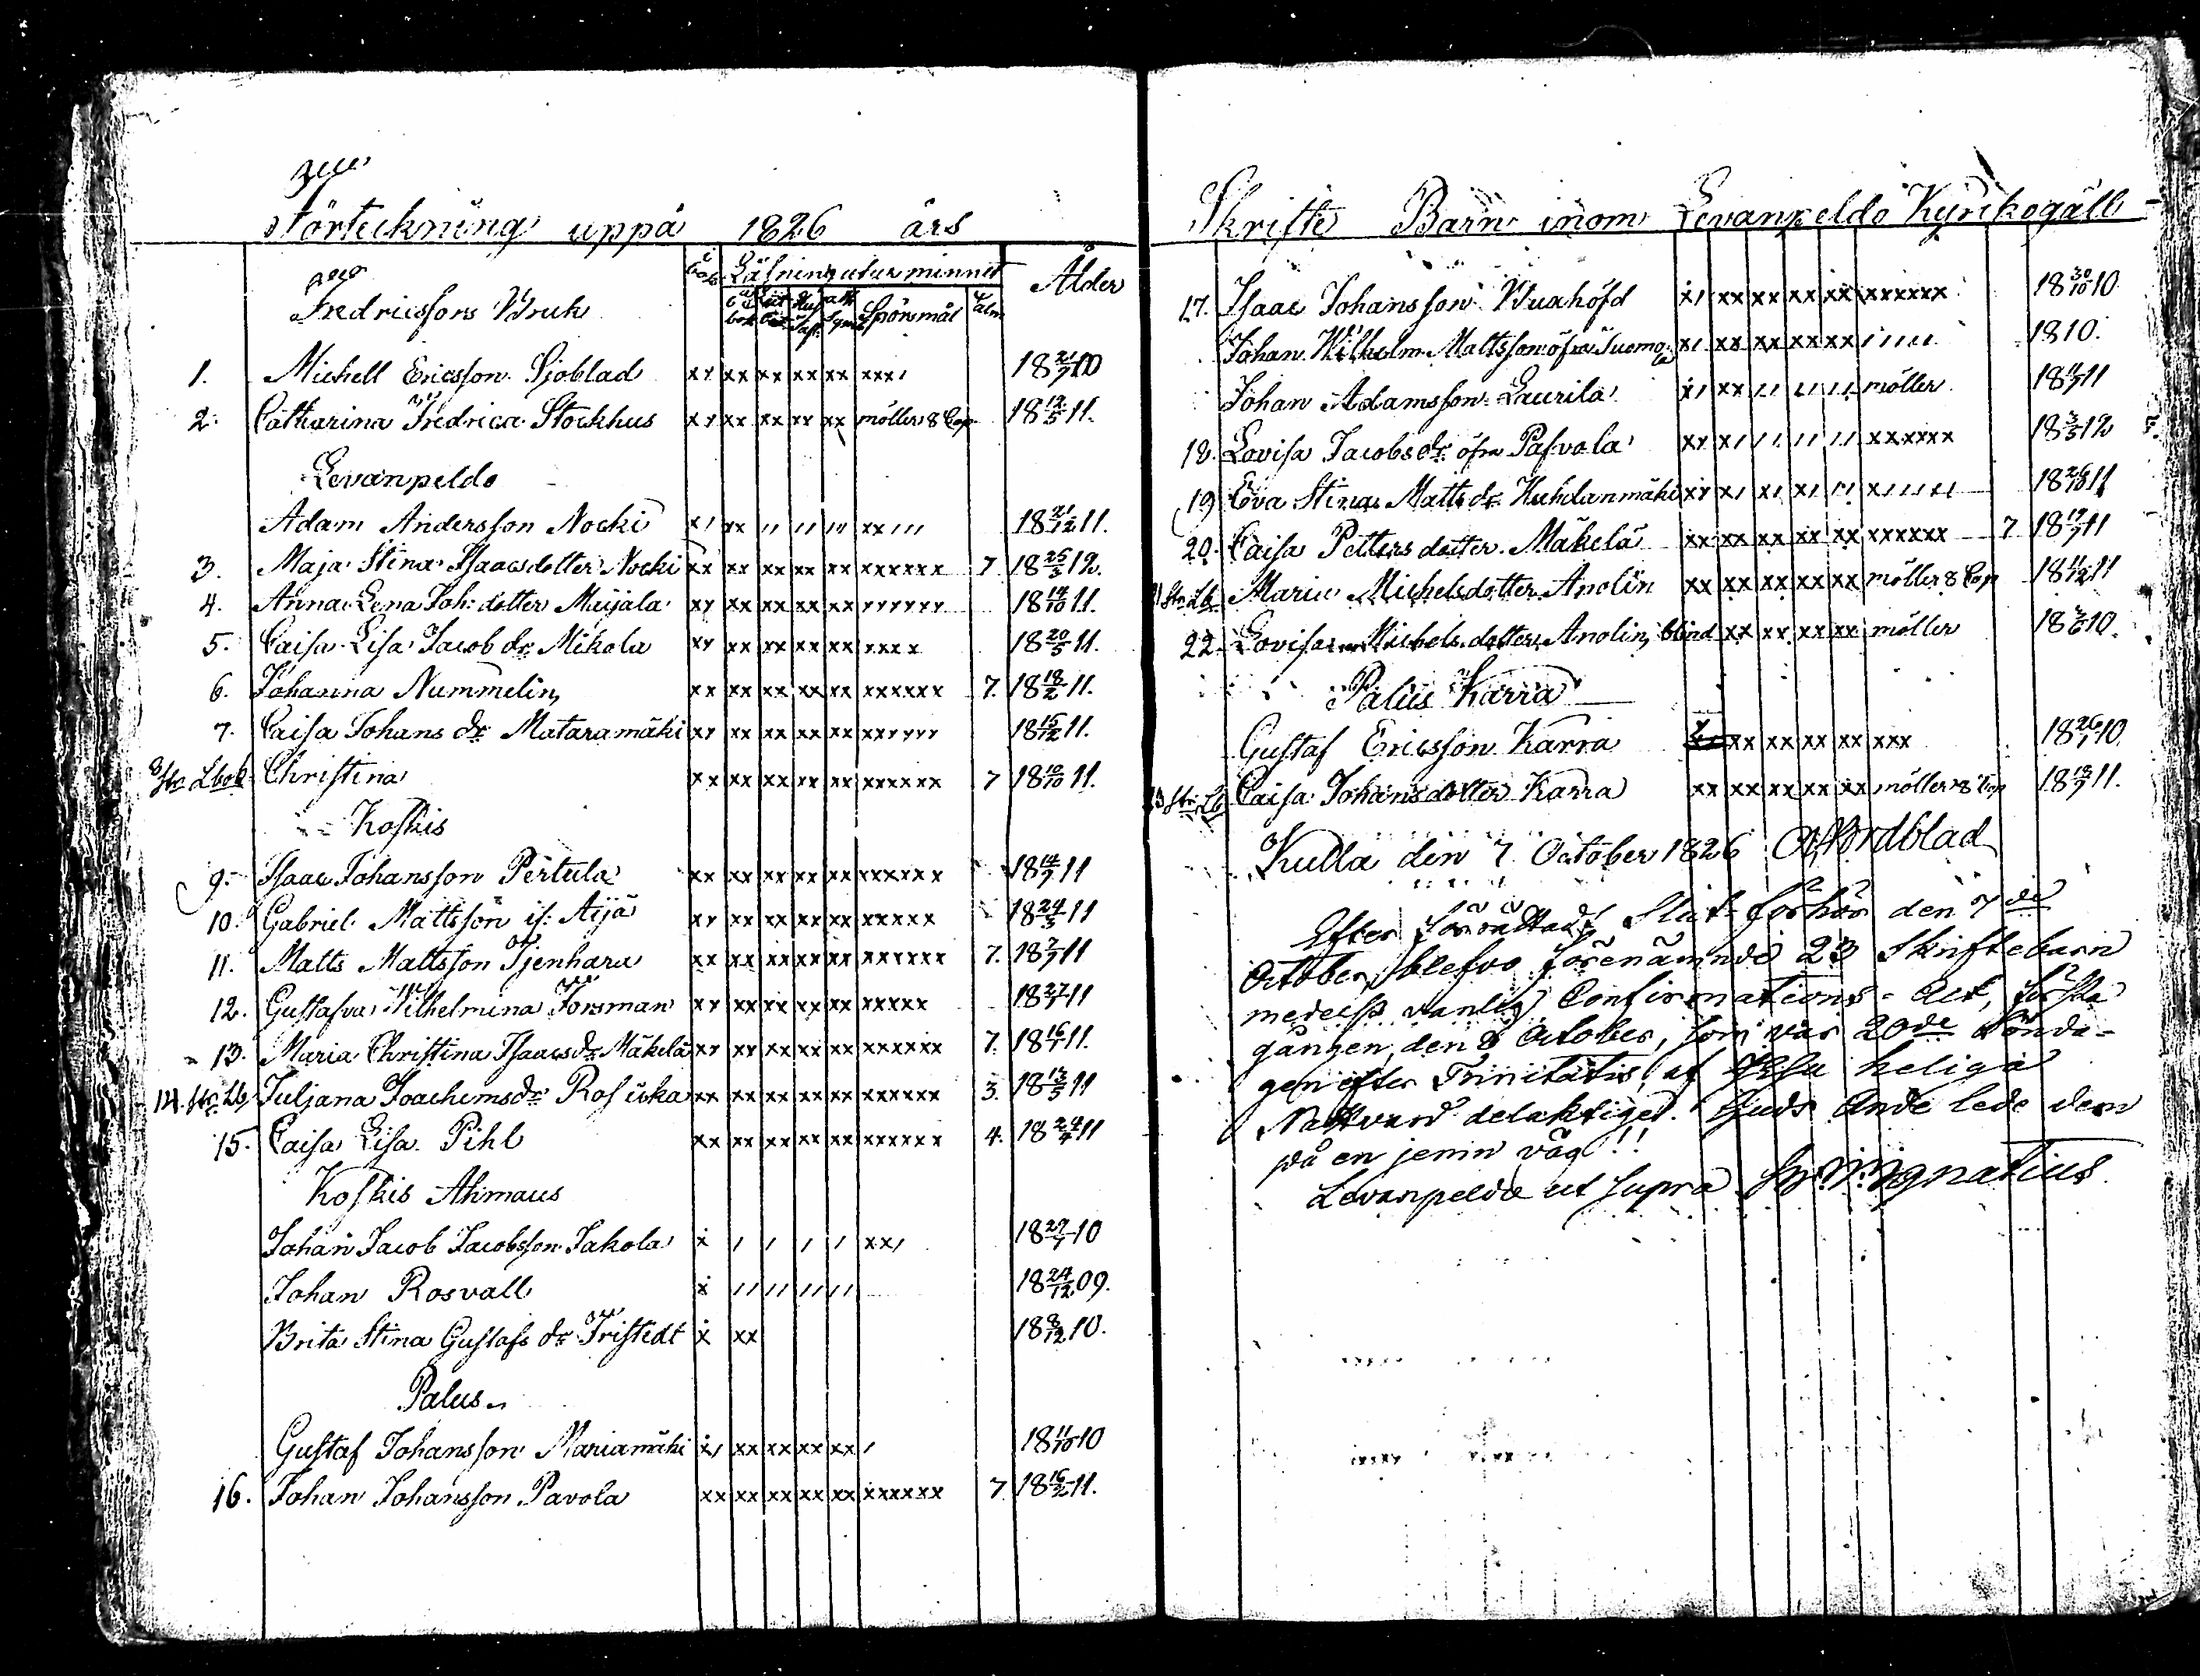 Förteckning uppå 1826 års
Läsning utur minnet Ålder
Spörsmål
Fredricsfors Bruk
1. Michell Ericsson Sjöblad xy xx xx xx xx xxx, 18 21/7 10
2. Catharina Fredrica Stockhus xy xx xx xy xx möller 8 Cap 18 12/5 11.
Levanpeldo
Adam Andersson Nocki x, xx ,, ,, ,, xx,,, 18 21/12 11.
3. Maja Stina Isaacsdotter Nocki xx xx xx xx xx xxxxxx 7 18 25/3 12.
4. Anna Lena Joh: dotter Maijala xy xx xx xx xx yyyyyy 18 19/10 11.
5. Caisa Lisa Jacobdr Mikola xy xx xx xx xx xxxx 18 20/5 11.
6. Johanna Nummelin xx xx xx xx xx xxxxxx 7. 18 18/2 11.
7. Caisa Johans dr Mataramäki xy xx xx xx xx xxyyyy 18 15/12 11.
8 Str Lbok Christina xx xx xx xx xx xxxxxx 7 18 10/10 11.
Koskis
9. Isaac Johansson Pertula xx xx xx xx xx xxxxxx 18 14/9 11
10. Gabriel Mattsson is: Äijä xy xx xx xx xx xxxxx 18 24/3 11
11. Matts Mattsson Tjenharu xx xx xx xx xx xxxxxx 7. 18 2/7 11
12. Gustafva Wilhelmina Forsman xy xx xx xx xx xxxxx 18 27/7 11
13. Maria Christina Isaacsdr Mäkelä xy xy xx xx xx xxxxxx 7. 18 16/7 11.
14. Str Lb, Juljana Joachimsdr Rosiska xx xx xx xx xx xxxxxx 3. 18 13/5 11
15. Caisa Lisa Pihl xx xx xx xx xx xxxxxx 4. 18 24/4 11
Koskis Ahmaus
Johan Jacob Jacobsson Jakola x , , , , xx, 18 27/7 10
Johan Rosvall x ,, ,, ,, ,, 18 24/12 09.
Brita Stina Gustafs dr Fristedt x xx 18 8/12 10.
Palus
Gustaf Johansson Mariamäki x, xx xx xx xx , 18 11/10 10
16. Johan Johansson Pavola xx xx xx xx xx xxxxxx 7 18 16/2 11.
Skrifte Barn inom Levanpeldo Kyrkogäll
17. Isaac Johansson Buxhöfd x, xx xx xx xx xxxxxx 18 30/10 10.
Johan Wilhelm Mattsson öfra Suomola x, xx xx xx xx ,,,,, 1810.
Johan Adamsson Laurila x, xx ,, ,, ,, möller 18 11
18. Lovisa Jacobsdr öfra Pasvola xy x, ,, ,, ,, xxxxxx 18 3/5 12
19 Eva Stina Mattsdr Huhdanmäki xy x, x, x, ,, x,,,,, 18 26/10 11
20. Caisa Pettersdotter Mäkelä xx xx xx xx xx xxxxxx 7 18 17/7 11
21 Str Lb Maria Michelsdotter Anolin xx xx xx xx xx möller 8 Cap 18 11/12 11
22. Lovisa Michelsdotter Anolin, blind xx xx xx xx möller 18 10.
Palus Karra
Gustaf Ericsson Karra xx xx xx xx xxx 18 26/1 10.
23 Str Lb Caisa Johansdotter Karra xx xx xx xx xx möller 8 Cap 18 19/7 11.
Kulla den 7 October 1826 Nordblad
Efter förrättadt Slut-förhör den 7de
October, blefvo förenämnde 23 Skriftebarn
medelst vanlig Confirmations-Act, första
gången, den 8 October, som var 20de Sönda-
gen efter Trinitatis, af Jesu heliga
Nattvard delaktiga. Guds Ande lede dem
på en jemn väg!!
Levanpeldo ut supra Ignatius